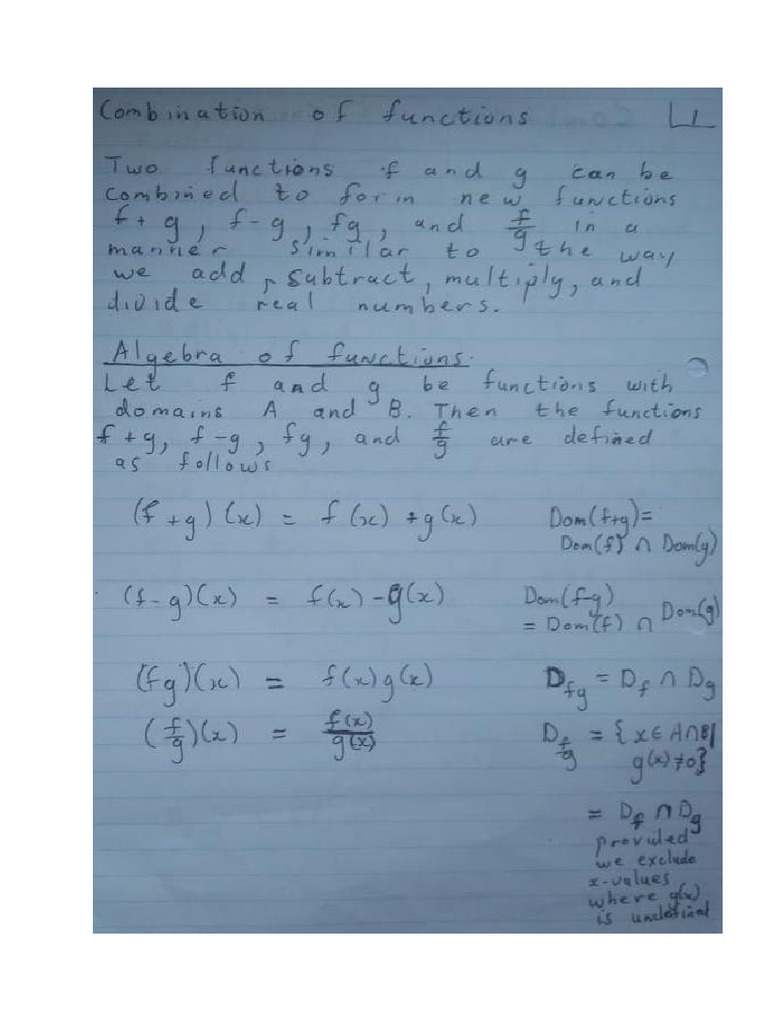 Combination of functions L1
Two functions f and g can be
combined to form new functions
f + g, f - g, fg, and f/g in a
manner similar to the way
we add, subtract, multiply, and
divide real numbers.
Algebra of functions.
Let f and g be functions with
domains A and B. Then the functions
f + g, f - g, fg, and f/g are defined
as follows
(f + g)(x) = f(x) + g(x) Dom(f+g) =
Dom(f) ∩ Dom(g)
(f - g)(x) = f(x) - g(x) Dom(f-g)
= Dom(f) ∩ Dom(g)
(fg)(x) = f(x)g(x) D_fg = D_f ∩ D_g
(f/g)(x) = f(x)/g(x) D_f/g = {x ∈ A∩B|
g(x) ≠ 0}
= D_f ∩ D_g
provided
we exclude
x-values
where g(x)
is undefined